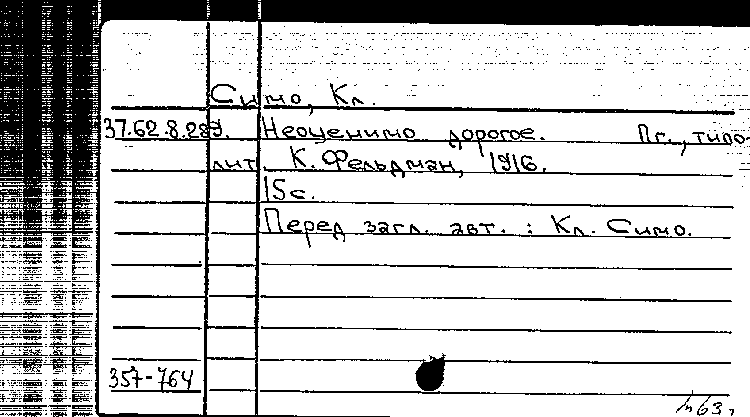 Симо, Кл.
37.62.8.289. Неоценимо дорогое. Пг., типо-
лит. К. Фельдман, 1916.
15с.
Перед загл. авт. : Кл. Симо.
357-764